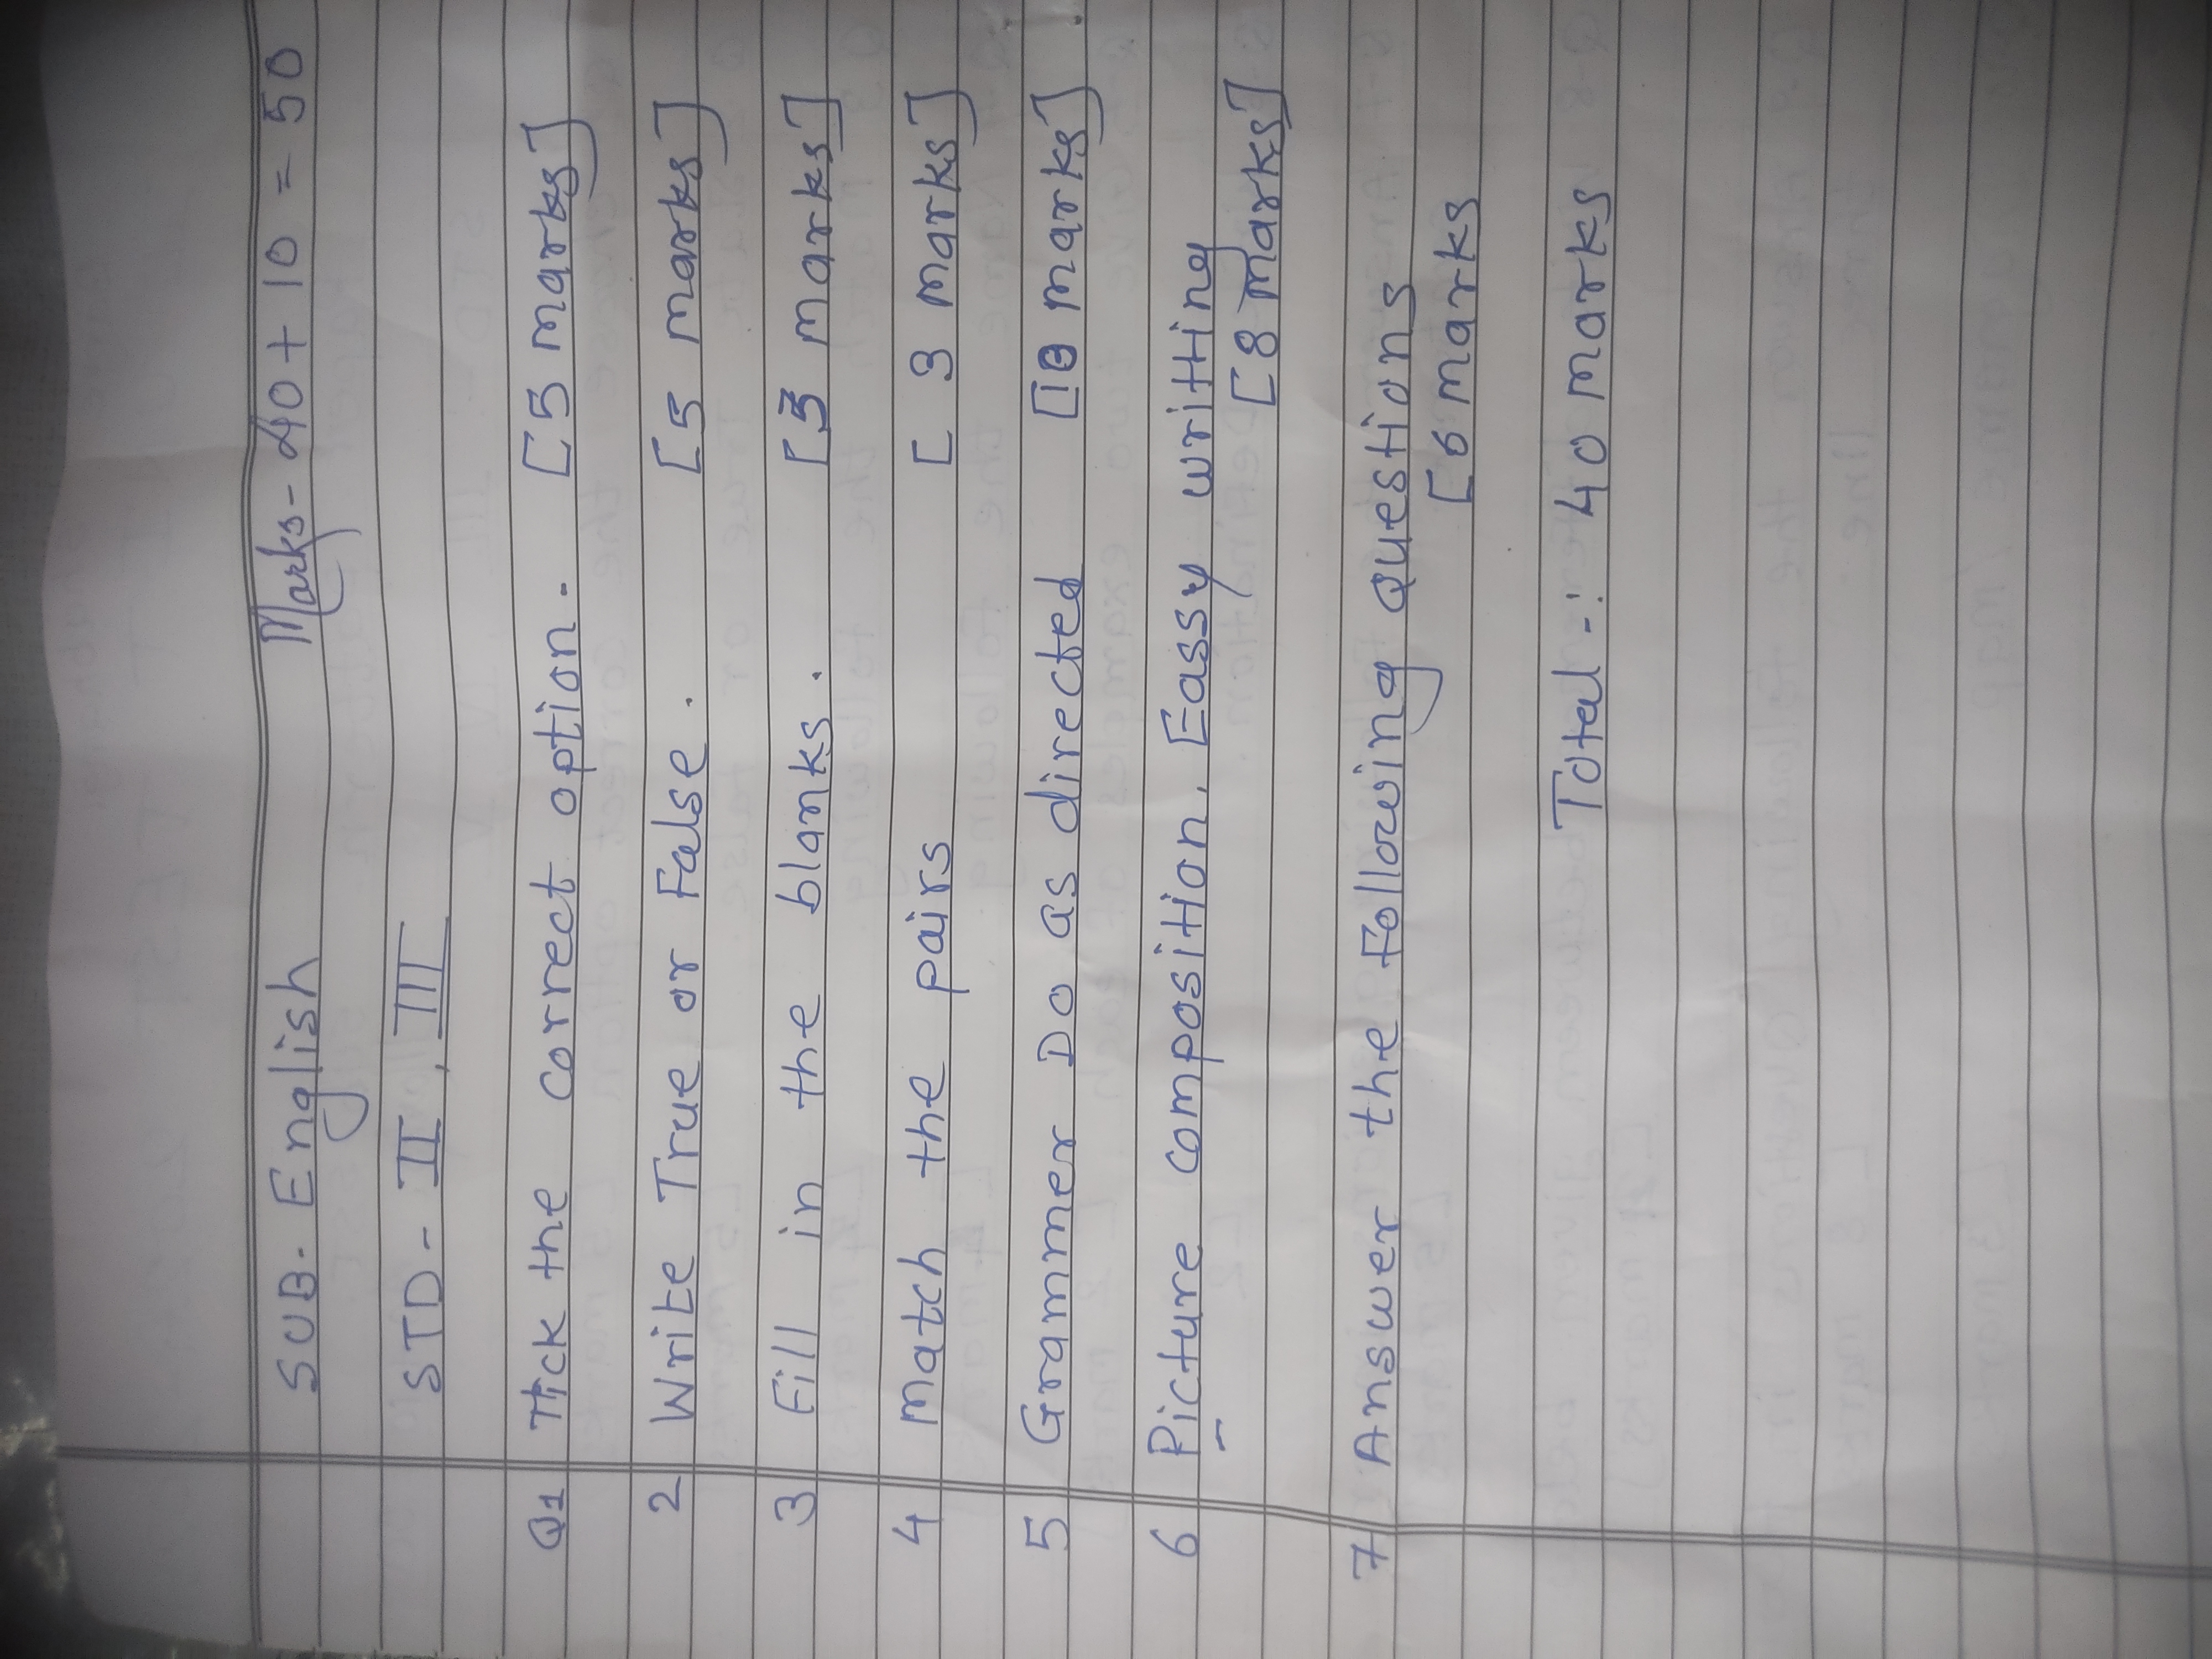 SUB. English Marks - 40 + 10 = 50
STD - II, III
Q1 Tick the correct option. [5 marks]
2 Write True or False. [5 marks]
3 Fill in the blanks. [3 marks]
4 Match the pairs [ 3 marks]
5 Grammer Do as directed [10 marks]
6 Picture composition, Eassy writting
[8 marks]
7 Answer the Following questions
[6 marks
Total -: 40 marks